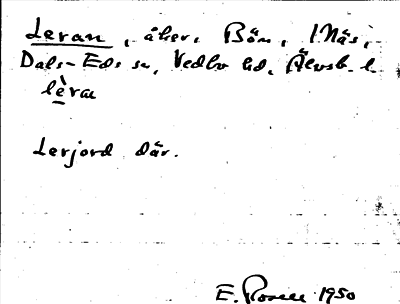 Leran, åker, Bön, 1 Näs,
Dals-Eds sn, Vedbo hd, Älvsb. l.
lèra
Lerjord där.
E. Rosell 1950